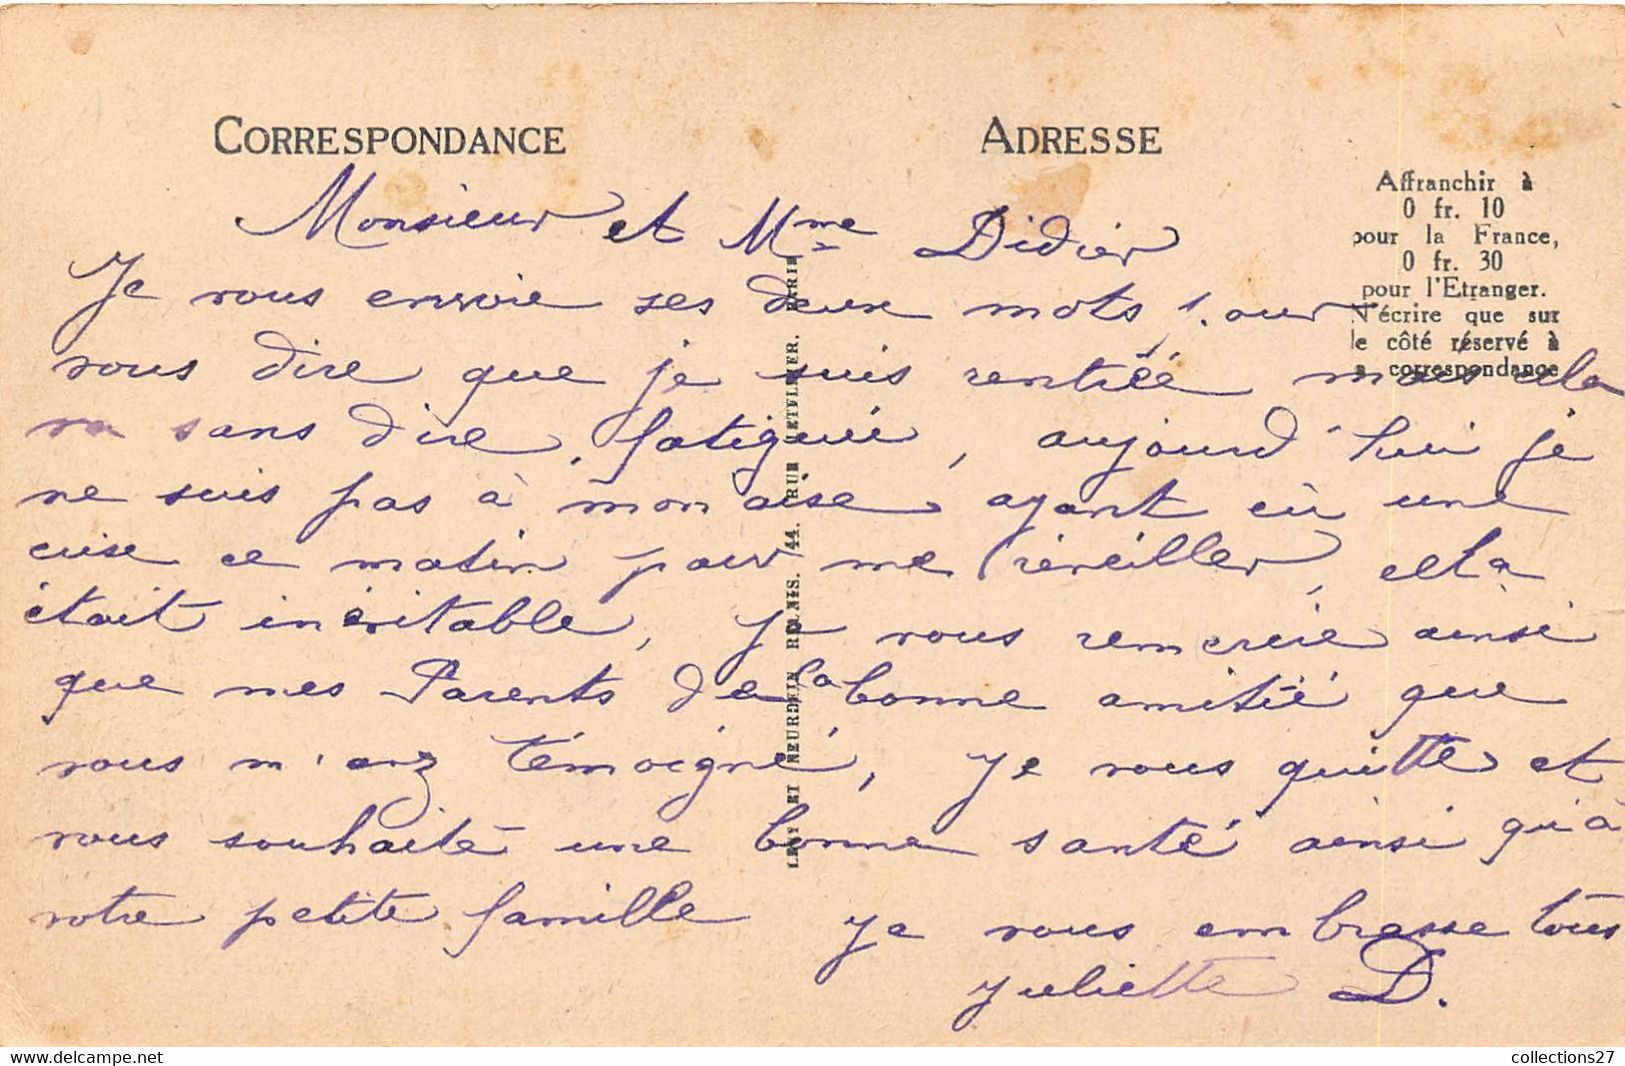 CORRESPONDANCE
ADRESSE
Affranchir à
0 fr. 10
pour la France,
0 fr. 30
pour l'Etranger.
N'écrire que sur
le côté réservé à
a correspondance
LEVY ET NEURDEIN REUNIS. 44. RUE LETELLIER. PARIS
Monsieur et Mme Didier
Je vous envoie ses deux mots pour
vous dire que je suis rentrée mais cela
va sans dire, fatiguée, aujourd'hui je
ne suis pas à mon aise, ayant eù une
crise ce matin pour me réveiller, cela
était inévitable, Je vous remercie ainsi
que mes Parents de la bonne amitié que
vous m'avez témoigné, Je vous quitte et
vous souhaite une bonne santé ainsi qu'à
votre petite famille Je vous embrasse tous
Juliette D.
collections27